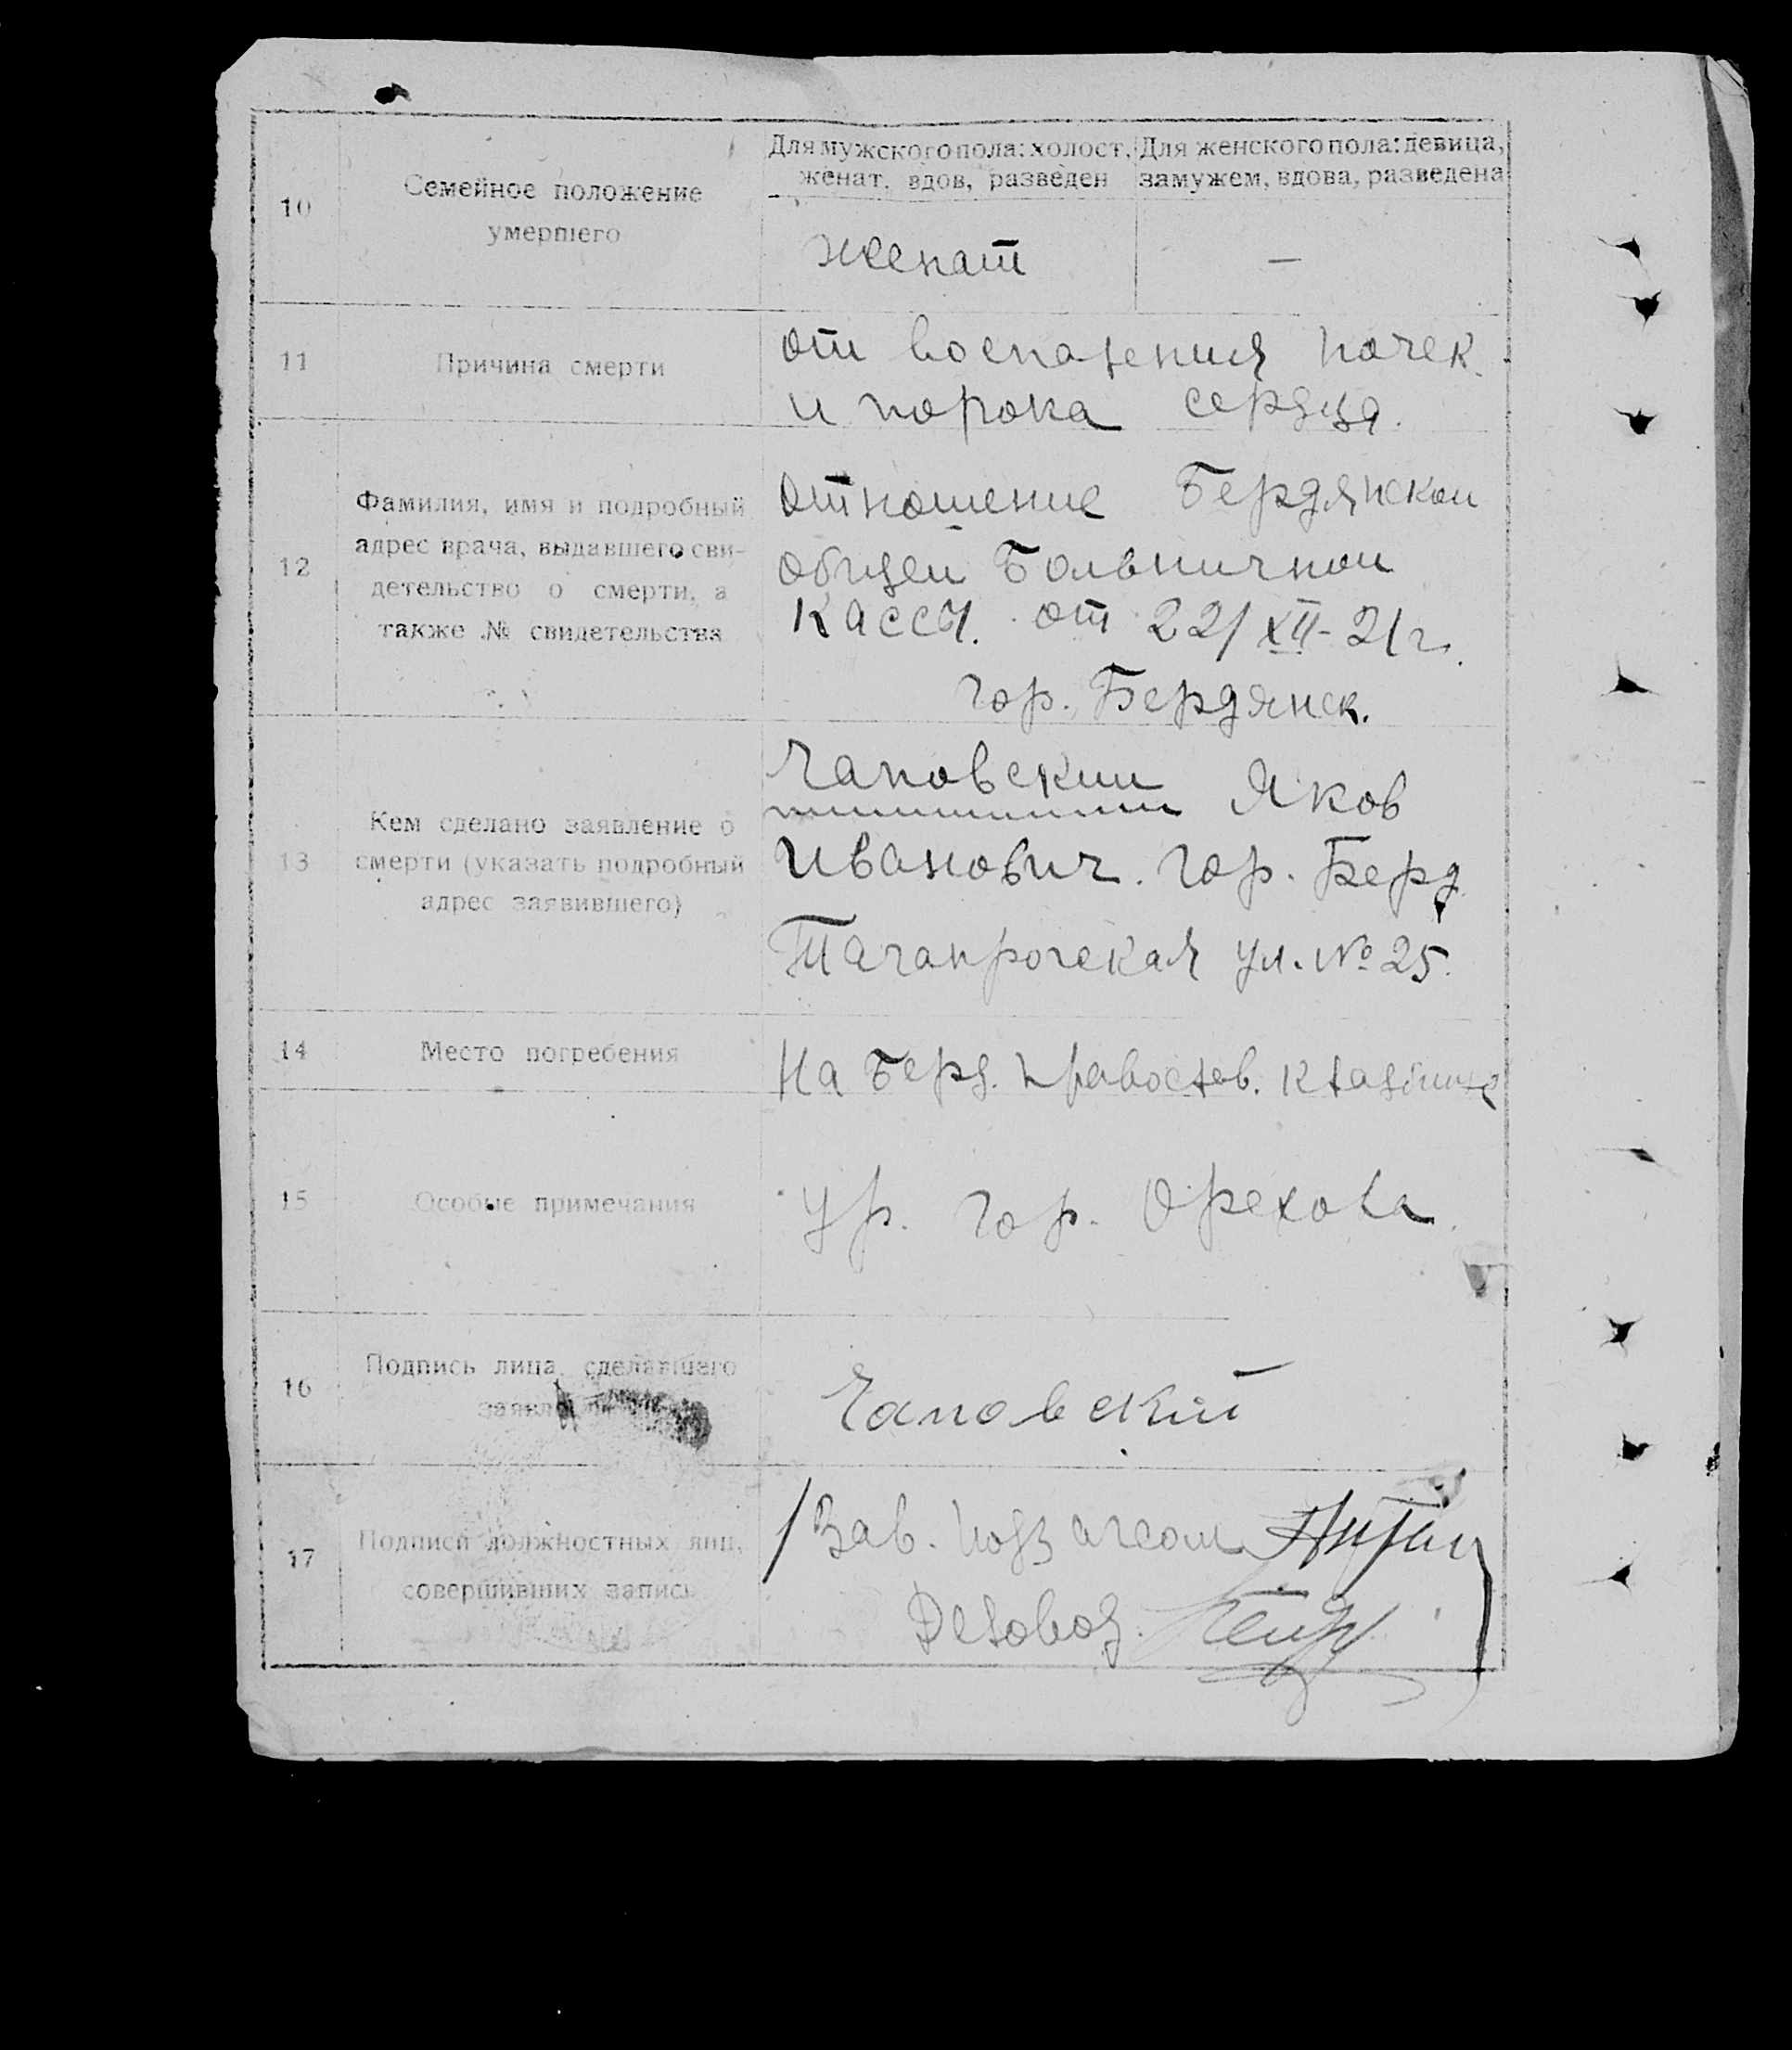 10
Семейное положение
умершего
Для мужского пола: холост,
женат, вдов, разведен
Для женского пола: девица,
замужем, вдова, разведена
женат
—
11
Причина смерти
от воспаления почек
и порока сердца.
12
Фамилия, имя и подробный
адрес врача, выдавшего сви-
детельство о смерти, а
также № свидетельства
Отношение Бердянской
общей Больничной
Кассы. от 22/XII-21г.
гор. Бердянск.
13
Кем сделано заявление о
смерти (указать подробный
адрес заявившего)
Чаповский Яков
Иванович. гор. Берд
Таганрогская ул. № 25.
14
Место погребения
На Берд. православ. кладбище
15
Особые примечания
ур. гор. Орехова.
16
Подпись лица, сделавшего
Чаповский
17
Подписи должностных лиц,
совершивших запись
Зав. Подзагсом
Деловод.